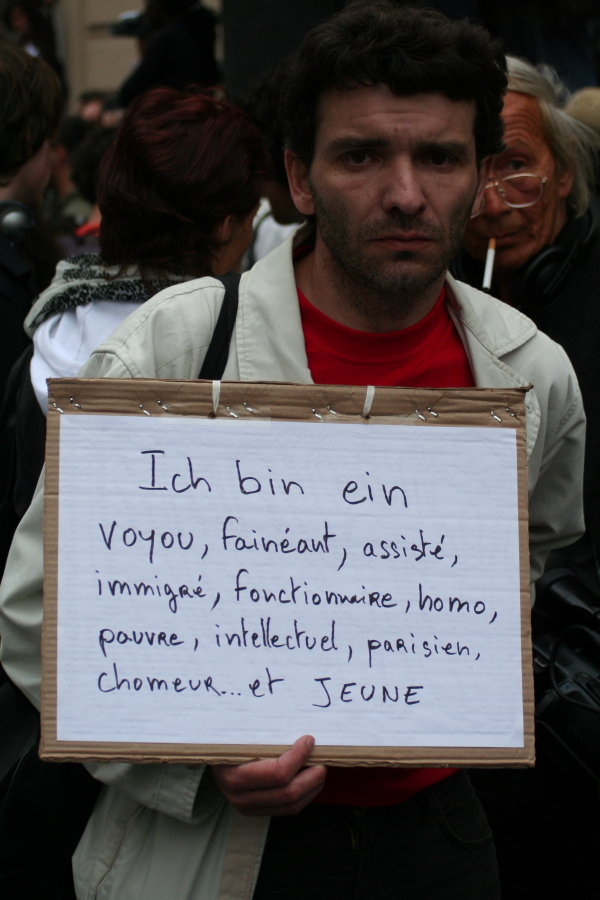 Ich bin ein
voyou, fainéant, assisté,
immigré, fonctionnaire, homo,
pauvre, intellectuel, parisien,
chomeur... et JEUNE